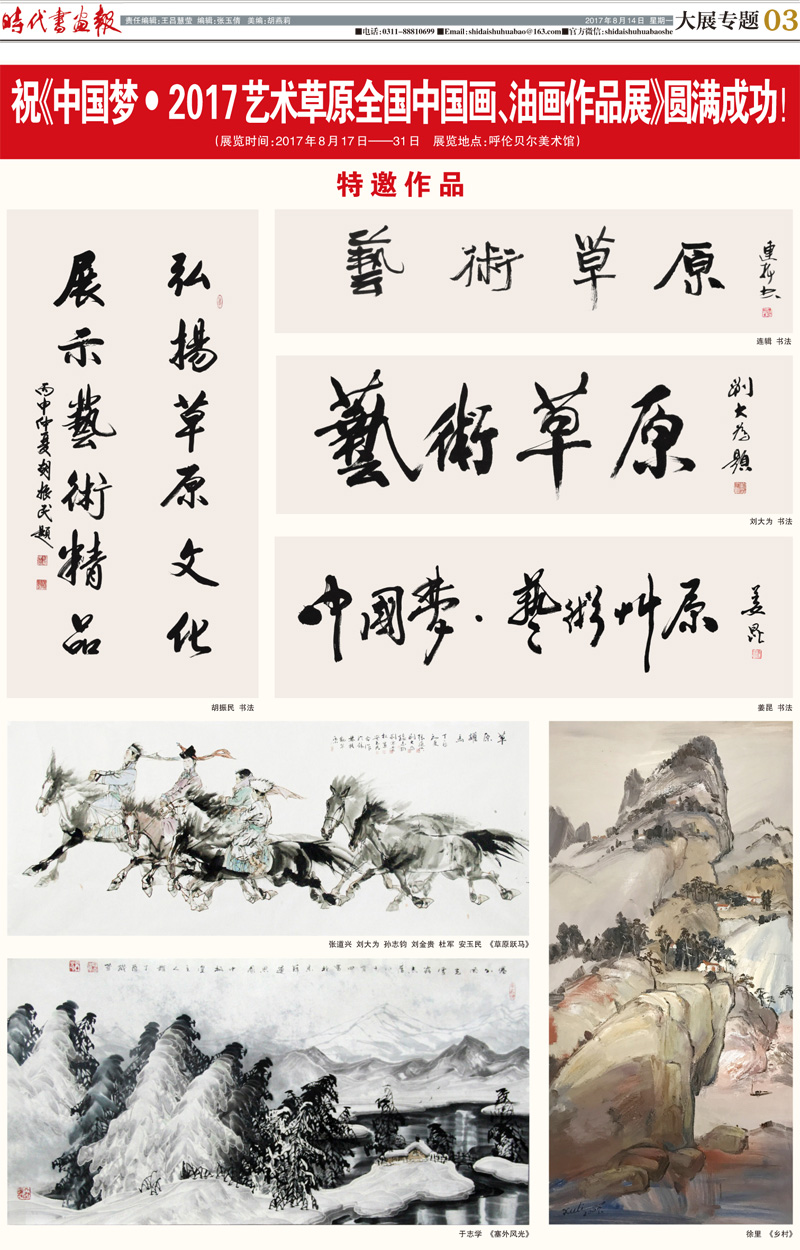 时代书画报
责任编辑:王吕慧莹 编辑:张玉倩 美编:胡燕莉
2017年8月14日 星期一
■电话:0311-88810699 ■Email:shidaishuhuabao@163.com■官方微信:shidaishuhuabaoshe
大展专题 03
祝《中国梦•2017艺术草原全国中国画、油画作品展》圆满成功!
(展览时间:2017年8月17日——31日 展览地点:呼伦贝尔美术馆)
特邀作品
弘揚草原文化
展示藝術精品
丙申仲夏胡振民题
胡振民 书法
藝術草原
连辑 书法
藝術草原
刘大为題
刘大为 书法
中國梦·藝術艸原
姜昆
姜昆 书法
草原跃马
张道兴 刘大为 孙志钧 刘金贵 杜军 安玉民 《草原跃马》
于志学 《塞外风光》
徐里 《乡村》